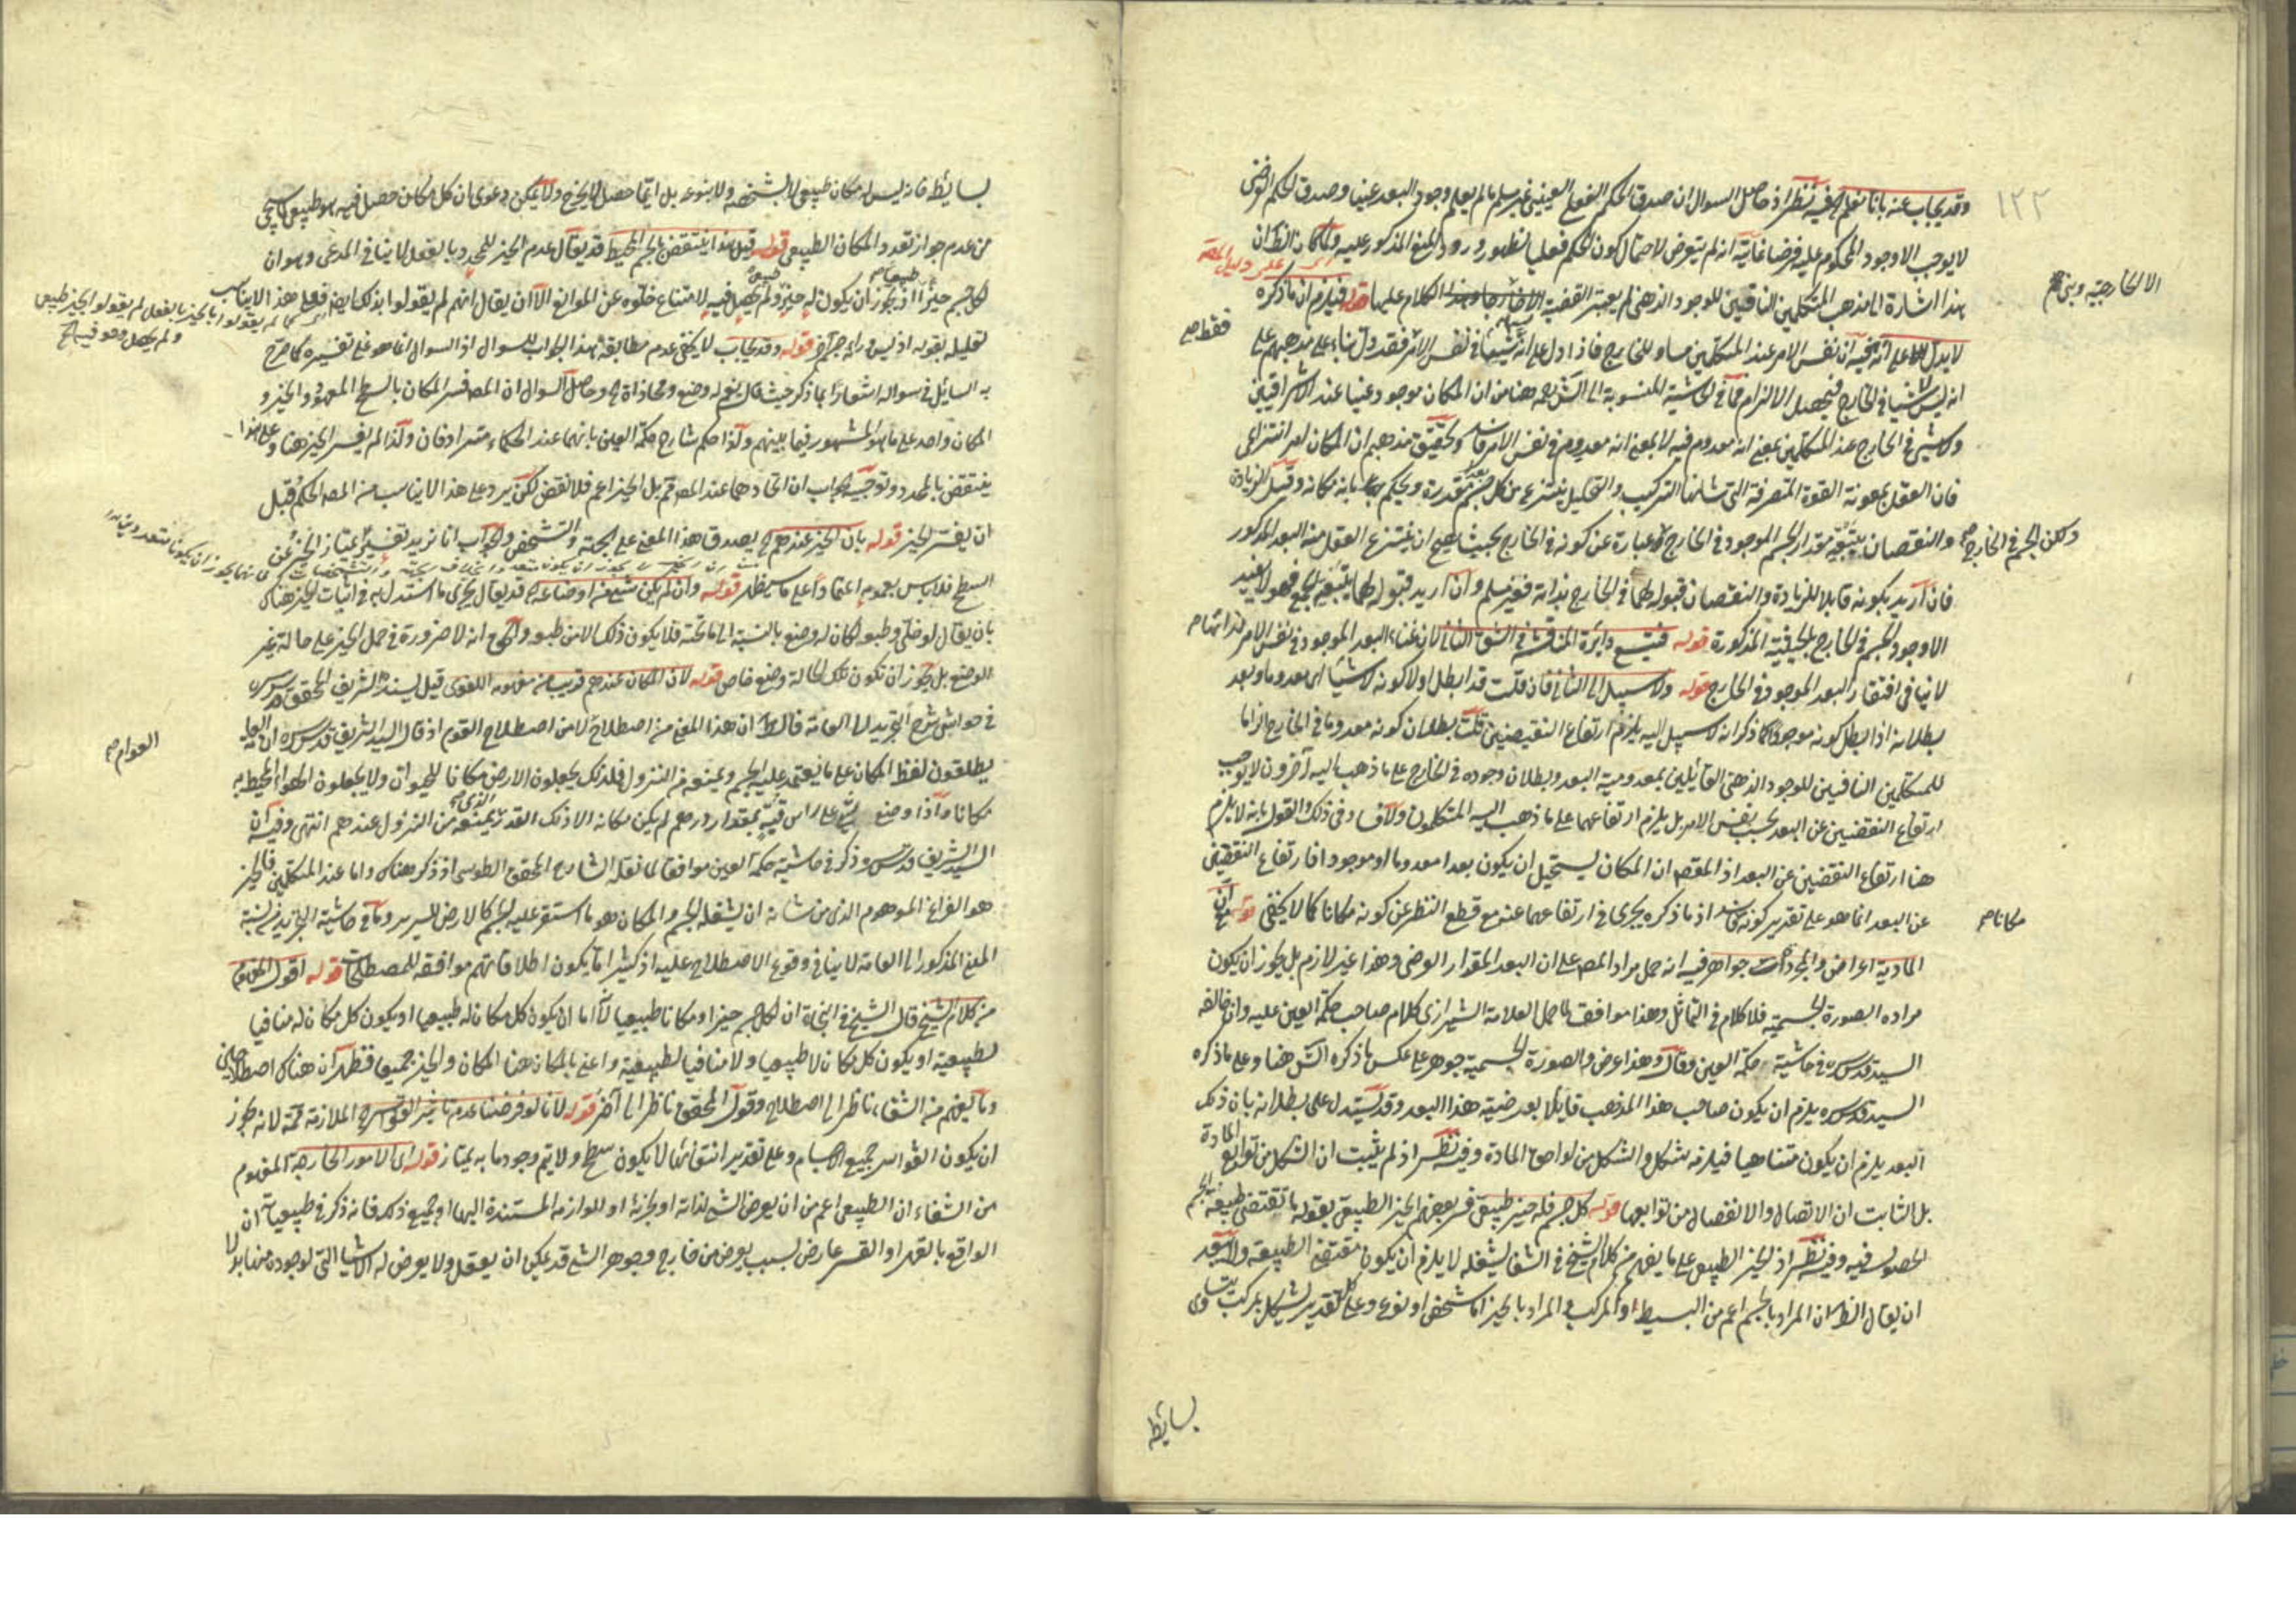 ١٢٢
وقد يجاب عنه بانا نعلم وفيه نظر اذ حاصل السوال ان صدق الحكم الفعلي العيني غير مسلم ما لم يعلم وجود البعد عينا وصدق الحكم الفرضي
لا يوجب الا وجود المحكوم عليه فرضا غايته انه لم يتعرض لاحتمال كون الحكم فعليا لظهور ورود المنع المذكور عليه
هذا اشارة الى مذهب المتكلمين النافين للوجود الذهني لم يعتبر القضية الكلام عليها قوله فيلزم ان ما ذكره
الا الخارجية وبنى
لا يدل على انه نفس الامر عند المتكلمين مساو للخارج فاذا دل على انه في نفس الامر فقد دل بناء على مذهبهم على
فقط
انه ليس لا شيئا في الخارج فيحصل الالزام فما في الحاشية المنسوبة الى الش ههنا من ان المكان موجود عينا عند الاشراقيين
ولا شيء في الخارج عند المتكلمين بمعنى انه معدوم فيه لا بمعنى انه معدوم في نفس الامر وتحقيق مذهبهم ان المكان امر انتزاعي
فان العقل بمعونة القوة المتصرفة التي شانها التركيب والتحليل ينتزع من كل جسم بقدره ويحكم بانه مكانه وقبول الزيادة
والنقصان مقدار الجسم الموجود في الخارج عبارة عن كونه في الخارج بحيث يصح ان ينتزع العقل منه البعد المذكور
ولكن الجسم في الخارج
فان اريد بكونه قابلا للزيادة والنقصان قبوله لهما في الخارج بذاته فغير مسلم وان اريد قبوله لهما بتبعية الجسم فهو لا يفيد
الا وجود الجسم في الخارج بالحيثية المذكورة قوله فيتسع دائرة المناقشة في الشق الثاني لان غناء البعد الموجود في نفس الامر لذاته
لا ينافي افتقار البعد الموجود في الخارج قوله ولا سبيل الى الثاني فان قلت قد ابطل اولا كونه لا شيئا اي معدوما وبعد
بطلانه اذا ابطل كونه موجودا كما ذكر انه لا سبيل اليه يلزم ارتفاع النقيضين قلت بطلان كونه معدوما في الخارج الزاما
للمتكلمين النافين للوجود الذهني القائلين بمعدومية البعد وبطلان وجوده في الخارج على ما ذهب اليه آخرون لا يوجب
ارتفاع النقيضين عن البعد بحسب نفس الامر بل يلزم ارتفاعهما على ما ذهب اليه المتكلمون ولا في ذلك والقول بانه لا يلزم
هنا ارتفاع النقيضين عن البعد اذ المقصود ان المكان يستحيل ان يكون بعدا معدوما او موجودا فارتفاع النقيضين
عن البعد انما هو على تقدير كونه اذ ما ذكره يجري في ارتفاعهما عنه مع قطع النظر عن كونه مكانا كما لا يخفى قوله
مكانا
المادية اعراض والمجردات جواهر فيه انه حمل مراد المصنف على ان البعد المقدار العرضي وهذا غير لازم بل يجوز ان يكون
مراده الصورة الجسمية فلا كلام في التماثل وهذا موافق لما حمل العلامة الشيرازي كلام صاحب حكمة العين عليه وان خالفه
السيد قدس سره في حاشية حكمة العين وقال وهذا عرض والصورة الجسمية جوهر على عكس ما ذكره الش هنا وعلى ما ذكره
السيد قدس سره يلزم ان يكون صاحب هذا المذهب قائلا بعرضية هذا البعد وقد يستدل على بطلانه بان ذلك
البعد يلزم ان يكون متناهيا فيلزمه شكل والشكل من لواحق المادة وفيه نظر اذ لم يثبت ان الشكل من توابع المادة
بل الثابت ان الاتصال والانفصال من توابعها قوله كل جسم فله حيز طبيعي فسر بعضهم الحيز الطبيعي بقوله ما تقتضي طبيعة الجسم
الحصول فيه وفيه نظر اذ الحيز الطبيعي على ما يفهم من كلام الشيخ في الشفا لا يلزم ان يكون مقتضى الطبيعة
ان يقال الظ ان المراد بالجسم اعم من البسيط او المركب والمراد بالحيز اما شخصي او نوعي وعلى تقدير يشكل بمركب
بسائطه
بسائطه فانه ليس له مكان طبيعي لا بشخصه ولا بنوعه بل اينما حصل لا يخرج ولا يمكن دعوى ان كل مكان حصل فيه هو طبيعي له
من عدم جواز تعدد المكان الطبيعي قوله قيل هذا ينتقض بالجسم المحيط قد يقال عدم الحيز للمحدد بالفعل لا ينافي المدعى وهو ان
لكل جسم حيزا اذ يجوز ان يكون له حيز ولم يحصل فيه لامتناع خلوه عن الموانع الا ان يقال انهم لم يقولوا بذلك ايضا فعلى هذا لا يناسب
لم يقولوا بالحيز بالفعل لم يقولوا الحيز طبيعي
ولم يحصل وهو فيه
تعليله بقوله اذ ليس وراءه جسم آخر قوله وقد يجاب لا يخفى عدم مطابقة هذا الجواب للسوال اذ السوال انما هو على تفسيره كما صرح
به السائل في سواله اشعارا بما ذكر حيث قال نعم له وضع ومحاذاة وحاصل السوال ان المصنف فسر المكان بالسطح المعهود والحيز و
المكان واحد على ما هو المشهور فيما بينهم ولذا حكم شارح حكمة العين بانهما عند الحكماء مترادفان ولذا لم يفسر الحيز هنا وعلى هذا
ينتقض بالمحدد وتوجيه الجواب ان اتحادهما عند المصنف ثم بل الحيز اعم فلا نقض لكن يرد على هذا لا يناسب من المصنف الحكم قبل
ان يفسر الحيز قوله بان الحيز عندهم يصدق هذا المعنى على الجهة والتشخص والجواب انا نريد تفسير يمتاز الحيز عن
السطح فلا باس بعمومه اعتمادا على ما سيظهر قوله وان لم يكن شيء من اوضاعه قد يقال يجري ما استدل به في اثبات الحيز هناك
بان يقال لو خلي وطبعه لكان له وضع بالنسبة الى ما تحته فلا يكون ذلك الا من طبعه والحق انه لا ضرورة في حمل الحيز على حالة غير
الوضع بل يجوز ان تكون تلك الحالة وضع خاص قوله لان المكان عندهم قريب من مفهومه اللغوي قيل لسند الشريف المحقق قدس سره
في حواشي شرح التجريد الى العامة قال ان هذا المعنى من اصطلاحهم لا من اصطلاح القوم اذ قال السيد الشريف قدس سره ان
العوام
يطلقون لفظ المكان على ما يعتمد عليه الجسم ويمنعه من النزول فلذلك يجعلون الارض مكانا للحيوان ولا يجعلون الهواء المحيط به
مكانا واذا وضع على راس قبة بمقدار درهم لم يكن مكانه الا ذلك القدر الذي يمنعه من النزول عندهم انتهى وفيه ان
السيد الشريف قدس سره ذكر في حاشية حكمة العين موافقا لما نقله الشارح المحقق الطوسي اذ ذكر هناك واما عند المتكلمين فالحيز
هو الفراغ الموهوم الذي من شانه ان يشغله الجسم والمكان هو ما استقر عليه الجسم كالارض للسرير وما في حاشية التجريد من نسبة
المعنى المذكور الى العامة لا ينافي وقوع الاصطلاح عليه اذ كثيرا ما يكون اطلاقاتهم موافقة للمصطلحات قوله اقول
من كلام الشيخ قال الشيخ في النجاة ان لكل جسم حيزا ومكانا طبيعيا لانه اما ان يكون كل مكان له طبيعيا او يكون كل مكان له منافيا
لطبيعته او يكون كل مكان لا طبيعيا ولا منافيا لطبيعته واعني بالمكان هنا المكان والحيز جميعا فظهر ان هناك اصطلاحين
وما يفهم من الشفاء ناظر الى اصطلاح وقول المحقق ناظر الى آخر قوله لانا لو فرضنا عدم تاثير القواسر الملازمة ثمة لانه يجوز
ان يكون القواسر جميع الاجسام وعلى تقدير انتفائها لا يكون سطح ولا يتم وجود ما به يمتاز قوله اي الامور الخارجة المفهوم
من الشفاء ان الطبيعي اعم من ان يعرض الشيء لذاته او لجزئه او للوازمه المستندة اليها وجميع ذلك فانه ذكر في طبيعياته ان
الواقع بالقهر او القسر عارض لسبب يعرض من خارج وجوهر الشيء قد يمكن ان يعقل ولا يعرض له الاشياء التي لوجوده منها بد